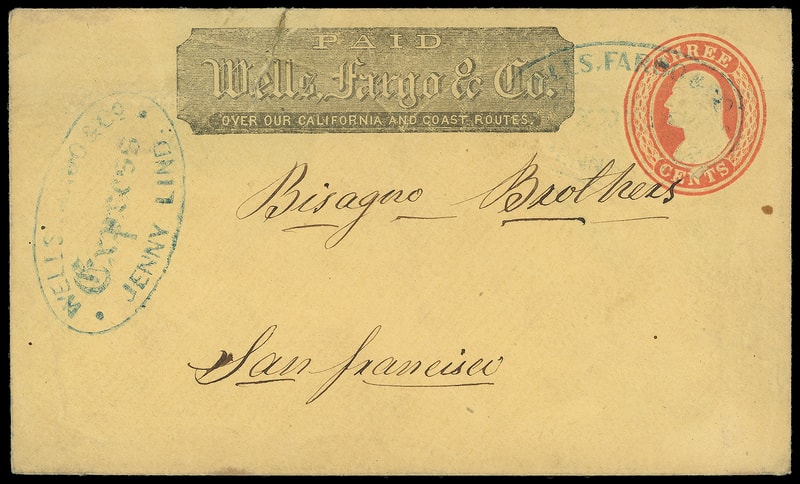 PAID
Wells, Fargo & Co.
OVER OUR CALIFORNIA AND COAST ROUTES.
THREE
CENTS
WELLS, FARGO & CO
WELLS FARGO & CO
Express
JENNY LIND.
Bisagno Brothers
San francisco